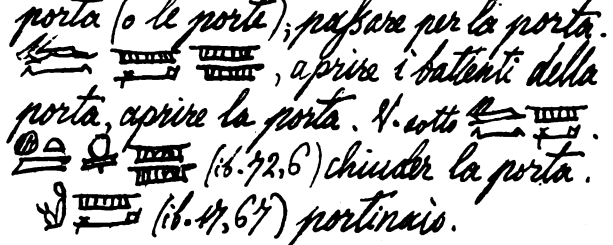 porta (o le porte); passare per la porta.
, aprire i battenti della
porta, aprire la porta. V. sotto .
(ib. 72, 6) chiuder la porta.
(ib. 47, 67) portinaio.